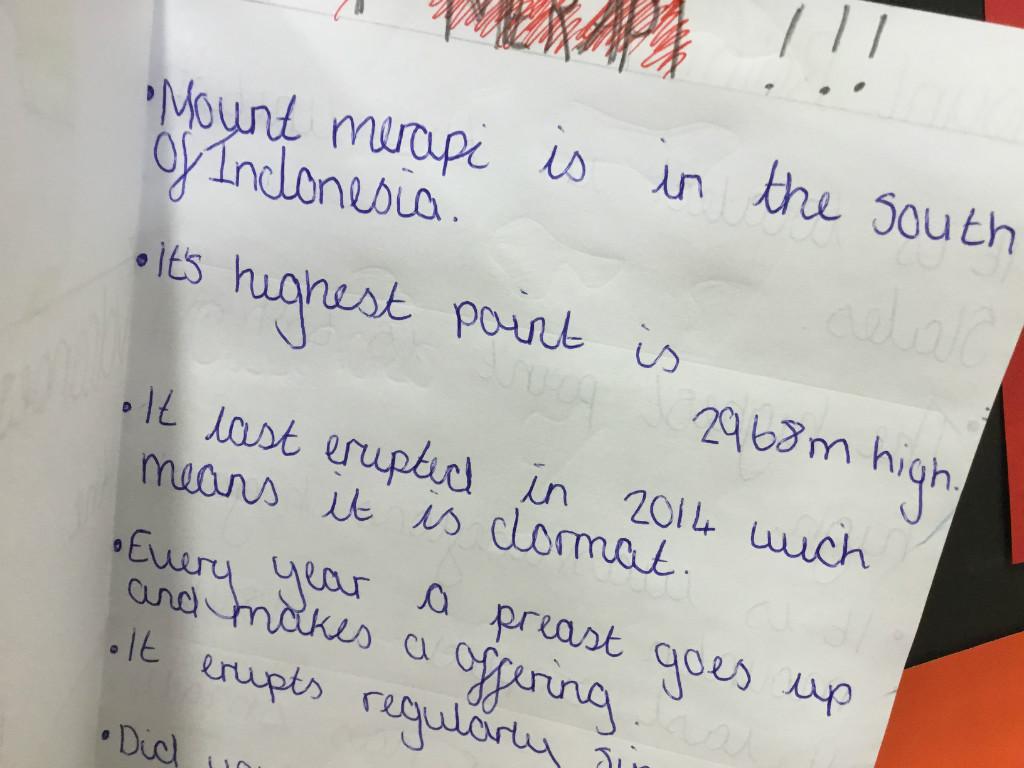 MERAPI !!!
•Mount merapi is in the south
of Indonesia.
•it's highest point is
2968m high.
•It last erupted in 2014 wich
means it is dormat.
•Every year a preast goes up
and makes a offering.
•It erupts regularly
•Did